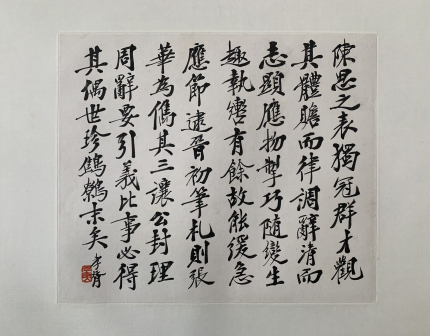 陳思之表獨冠群才觀
其體贍而律調辭清而
志顯應物掣巧隨變生
趣執轡有餘故能緩急
應節逮晉初筆札則張
華為儁其三讓公封理
周辭要引義比事必得
其偶世珍鷦鷯末矣